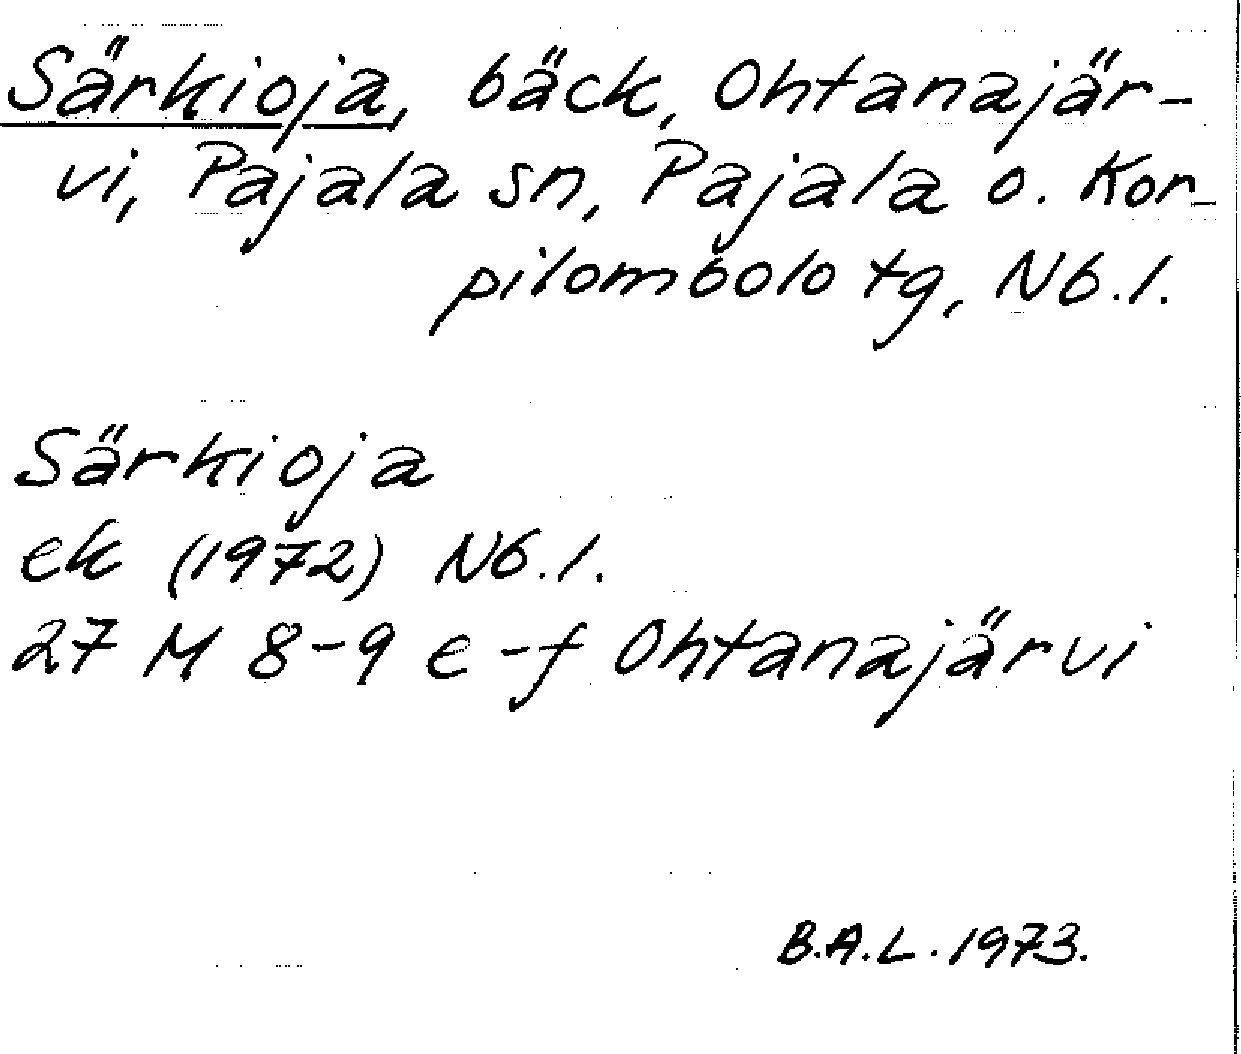 Särkioja, bäck, Ohtanajär-
vi, Pajala sn, Pajala o. Kor-
pilombolo tg, Nb.l.
Särkioja
ek (1972) Nb.l.
27 M 8-9 e-f Ohtanajärvi
B.A.L. 1973.